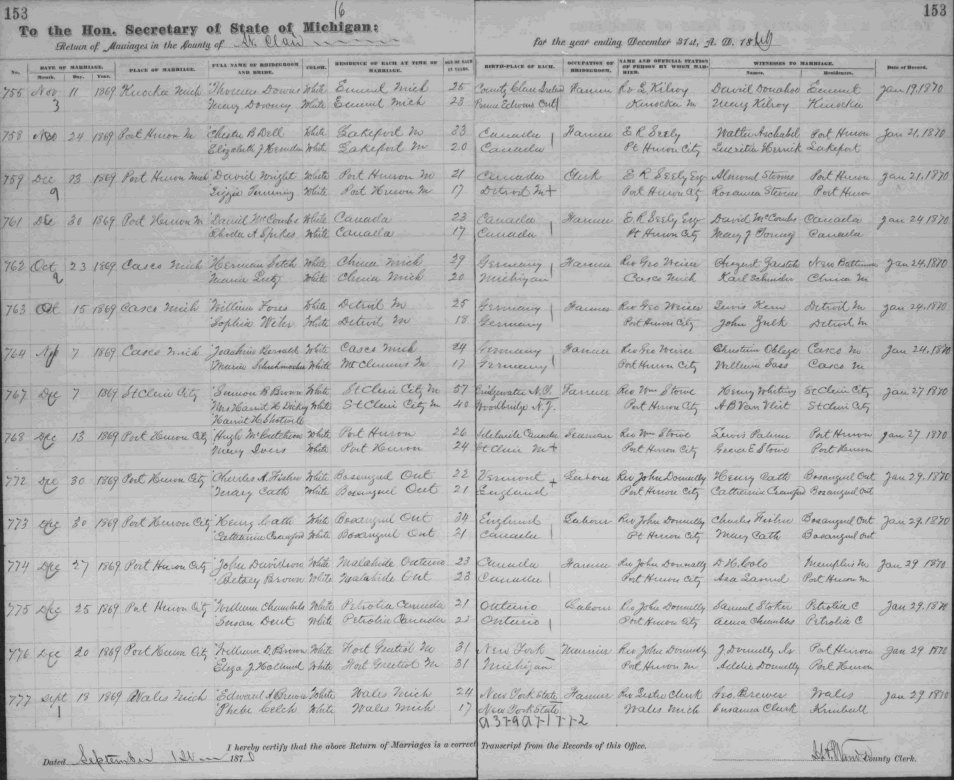 153
16
153
To the Hon. Secretary of State of Michigan:
Return of Marriages in the County of St. Clair
for the year ending December 31st, A. D. 1869
No. DATE OF MARRIAGE. Month. Day. Year. PLACE OF MARRIAGE. FULL NAME OF BRIDEGROOM AND BRIDE. COLOR. RESIDENCE OF EACH AT TIME OF MARRIAGE. AGE OF EACH IN YEARS. BIRTH-PLACE OF EACH. OCCUPATION OF BRIDEGROOM. NAME AND OFFICIAL STATION OF PERSON BY WHOM MARRIED. WITNESSES TO MARRIAGE. Names. Residences. Date of Record.
755 Nov 11 1869 Kenockee Mich Thomas White Emmet Mich 25 County Clare Farmer Rev Kilroy David Donahoe Emmet Jan 19, 1870
3 Mary White Emmet Mich 23 Prince Edward Ont Kenockee M Mary Kilroy Kenockee
758 24 1869 Port Huron M Chester B Dell White Lakeport M 23 Canada Farmer E R Seely Port Huron Jan 21, 1870
Elizabeth J White Lakeport M 20 Canada Pt Huron City Lucretia Herrick Lakeport
759 Dec 13 1869 Port Huron Mich David Wright White Port Huron M 21 Canada Clerk E R Seely Esq Almond Port Huron Jan 21, 1870
9 Lizzie White Port Huron M 17 Detroit M Port Huron City Port Huron
761 Dec 30 1869 Port Huron M Daniel McCombs White Canada 23 Canada Farmer E R Seely Esq David McCombs Canada Jan 24, 1870
Rhoda A White Canada 17 Canada Pt Huron City Mary J Canada
762 Oct 23 1869 Casco Mich Herman White China Mich 29 Germany Farmer Rev Geo August Jan 24, 1870
9 Maria White China Mich 20 Michigan Casco Mich Karl Schneider China M
763 Oct 15 1869 Casco Mich William White Detroit M 25 Germany Farmer Rev Geo Detroit M Jan 24, 1870
Sophia White Detroit M 18 Germany Port Huron City John Detroit M
764 7 1869 Casco Mich Joachim White Casco Mich 24 Germany Farmer Rev Geo Christian Casco M Jan 24, 1870
Maria White Mt Clemens M 17 Germany Port Huron City William Casco M
767 Dec 7 1869 St Clair City B Brown White St Clair City M 57 Bridgwater N.J. Farmer Rev Wm Stowe Henry Whiting St Clair City Jan 27 1870
Mrs Harriet H White St Clair City M 40 Woodbridge N.J. Port Huron City A B Van Vliet St Clair City
Harriet H
768 Dec 13 1869 Port Huron City Hugh McCutcheon White Port Huron 26 Adelaide Canada Seaman Rev Wm Stowe Lewis Palmer Port Huron Jan 27. 1870
Mary White Port Huron 24 St Clair M Port Huron City E Stowe Port Huron
772 Dec 30 1869 Port Huron City Charles A Fisher White Bosanquet Ont 22 Vermont Labour Rev John Donnelly Henry Cath Bosanquet Ont Jan 29. 1870
Mary Cath White Bosanquet Ont 21 England Port Huron City Catharine Crawford Bosanquet Ont
773 Dec 30 1869 Port Huron City Henry Cath White Bosanquet Ont 34 England Labour Rev John Donnelly Charles Fisher Bosanquet Ont Jan 29. 1870
Catharine Crawford White Bosanquet Ont 21 Canada Pt Huron City Mary Cath Bosanquet Ont
774 Dec 27 1869 Port Huron City John Davidson White Malahide Ontario 23 Canada Farmer Rev John Donnelly D H Cole Memphis M Jan 29 1870
Betsey Brown White Malahide Ont 23 Canada Port Huron City Port Huron M
775 Dec 25 1869 Port Huron City William Chambers White Petrolia Canada 21 Ontario Labour Rev John Donnelly Samuel Stokes Petrolia C Jan 29. 1870
Susan Dent White Petrolia Canada 22 Ontario Port Huron City Anna Chambers Petrolia C
776 Dec 20 1869 Port Huron City William D Brown White Fort Gratiot M 31 New York Mariner Rev John Donnelly J Donnelly Jr Port Huron Jan 29 1870
Eliza J Holland White Fort Gratiot M 31 Michigan Port Huron M Addie Donnelly Port Huron
777 Sept 18 1869 Wales Mich Edward A Brewer White Wales Mich 24 New York State Farmer Rev Clerk Geo. Brewer Wales Jan 29 1870
1 Phebe White Wales Mich 17 New York State Wales Mich Susanna Clark Kimball
I hereby certify that the above Return of Marriages is a correct Transcript from the Records of this Office.
Dated September 1st 1870
County Clerk.